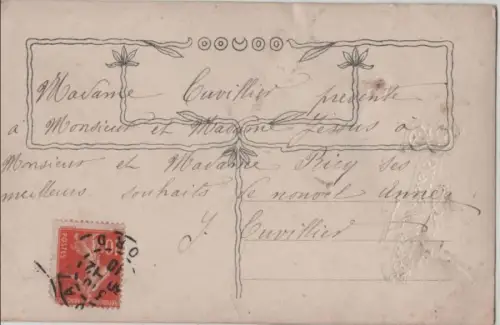 Madame Cuvillier présente
à Monsieur et Madame Jessus à
Monsieur et Madame Bicy ses
meilleurs souhaits de nouvel année
J. Cuvillier
POSTES